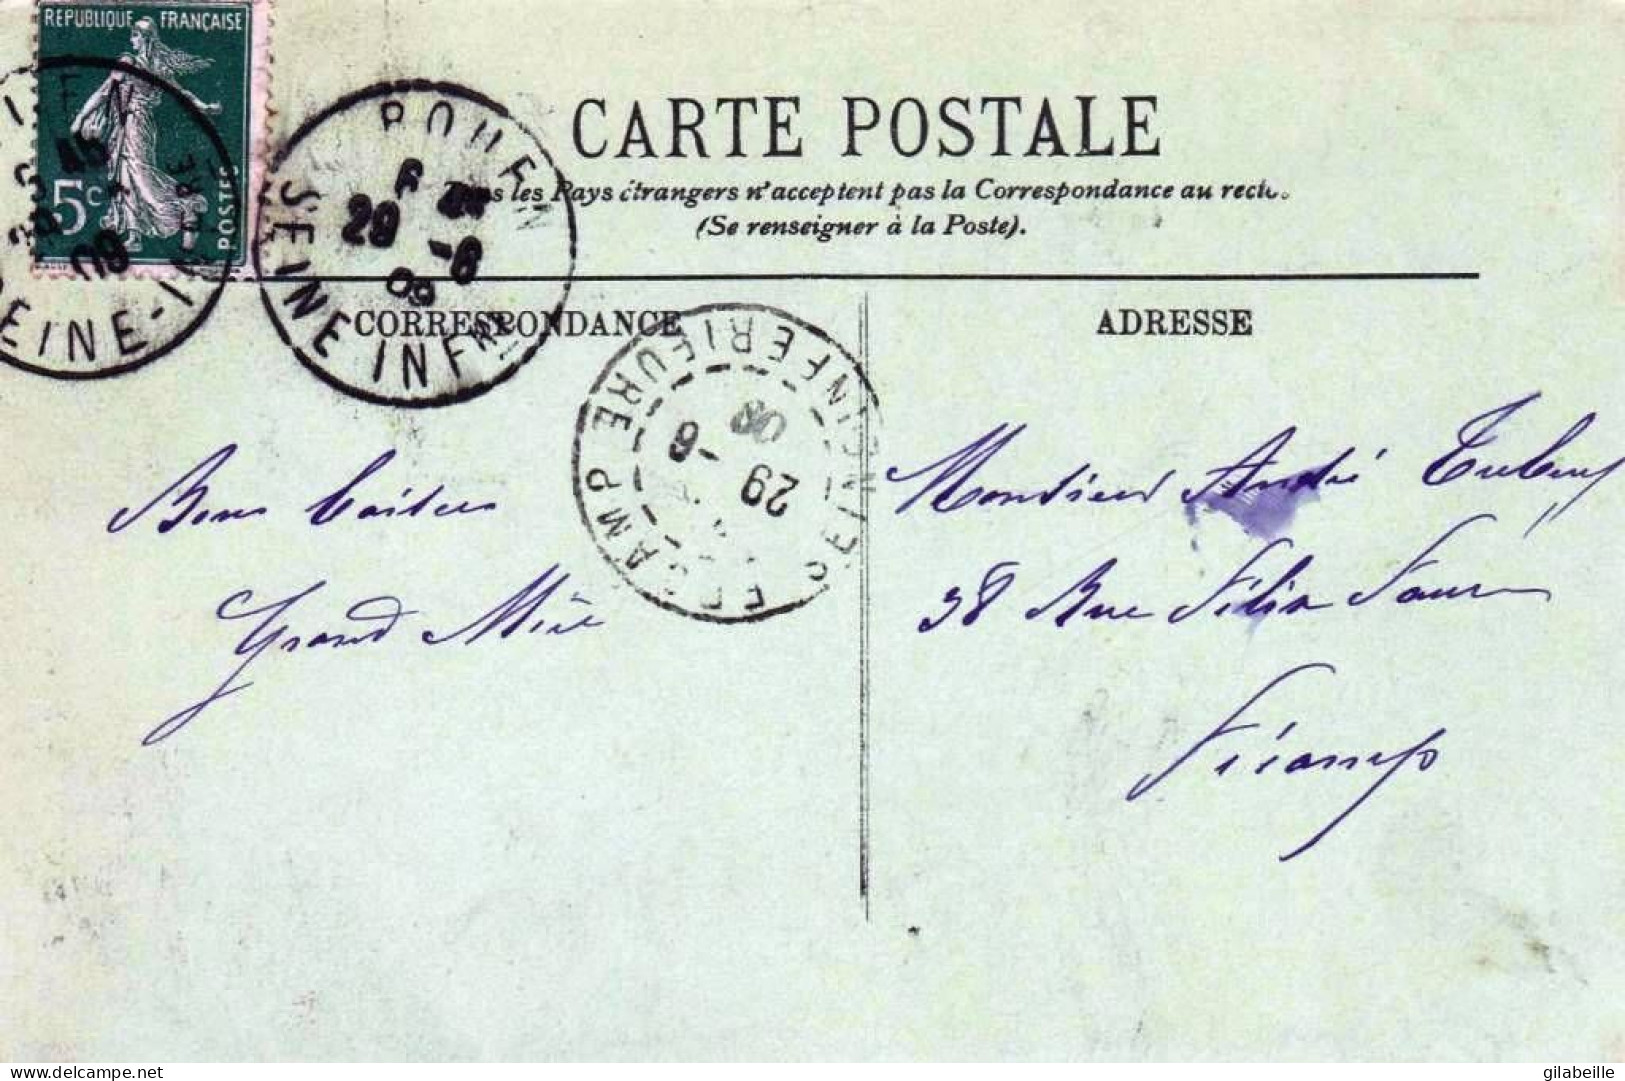 REPUBLIQUE FRANÇAISE
5c
POSTES
ROUEN
SEINE INFRE
29 -6
09
CARTE POSTALE
Tous les Pays étrangers n'acceptent pas la Correspondance au recto.
(Se renseigner à la Poste).
CORRESPONDANCE
ADRESSE
FECAMP
SEINE INFERIEURE
29 -6
09
Bons baisers
Grand Mère
Monsieur André
38 Rue Félix Faure
Fécamp
gilabeille